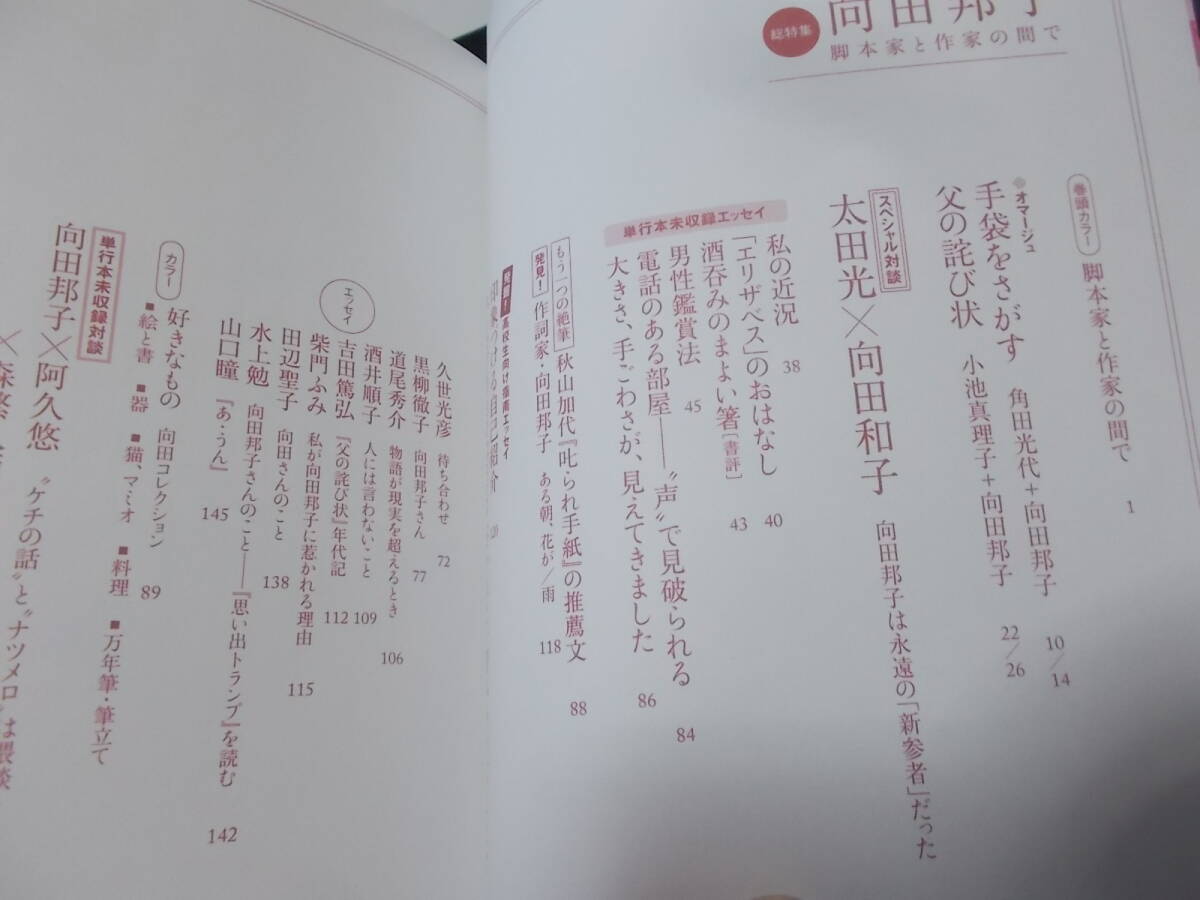 総特集
向田邦子
脚本家と作家の間で
巻頭カラー 脚本家と作家の間で 1
※オマージュ
手袋をさがす 角田光代+向田邦子 10/14
父の詫び状 小池真理子+向田邦子 22/26
スペシャル対談
太田光×向田和子 向田邦子は永遠の「新参者」だった
単行本未収録エッセイ
私の近況 38
「エリザベス」のおはなし 40
酒呑みのまよい箸[書評] 43
男性鑑賞法 45
電話のある部屋――〝声〟で見破られる 84
大きさ、手ごわさが、見えてきました 86
もう一つの絶筆 秋山加代『叱られ手紙』の推薦文 88
発見! 作詞家・向田邦子 ある朝、花が/雨 118
高校生向け指南エッセイ
自己紹介
エッセイ
久世光彦 待ち合わせ 72
黒柳徹子 向田邦子さん 77
道尾秀介 物語が現実を超えるとき 106
酒井順子 人には言わないこと 109
吉田篤弘 『父の詫び状』年代記 112
柴門ふみ 私が向田邦子に惹かれる理由 115
田辺聖子 向田さんのこと 138
水上勉 向田邦子さんのこと――『思い出トランプ』を読む 142
山口瞳 『あ・うん』 145
カラー 好きなもの 向田コレクション 89
■絵と書 ■器 ■猫、マミオ ■料理 ■万年筆・筆立て
単行本未収録対談
向田邦子×阿久悠 〝ケチの話〟と〝ナツメロ〟は猥談